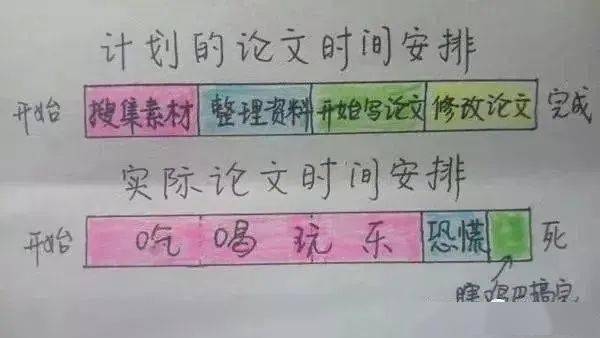 计划的论文时间安排
开始 搜集素材 整理资料 开始写论文 修改论文 完成
实际论文时间安排
开始 吃 喝 玩 乐 恐慌 死
瞎鸡巴搞完